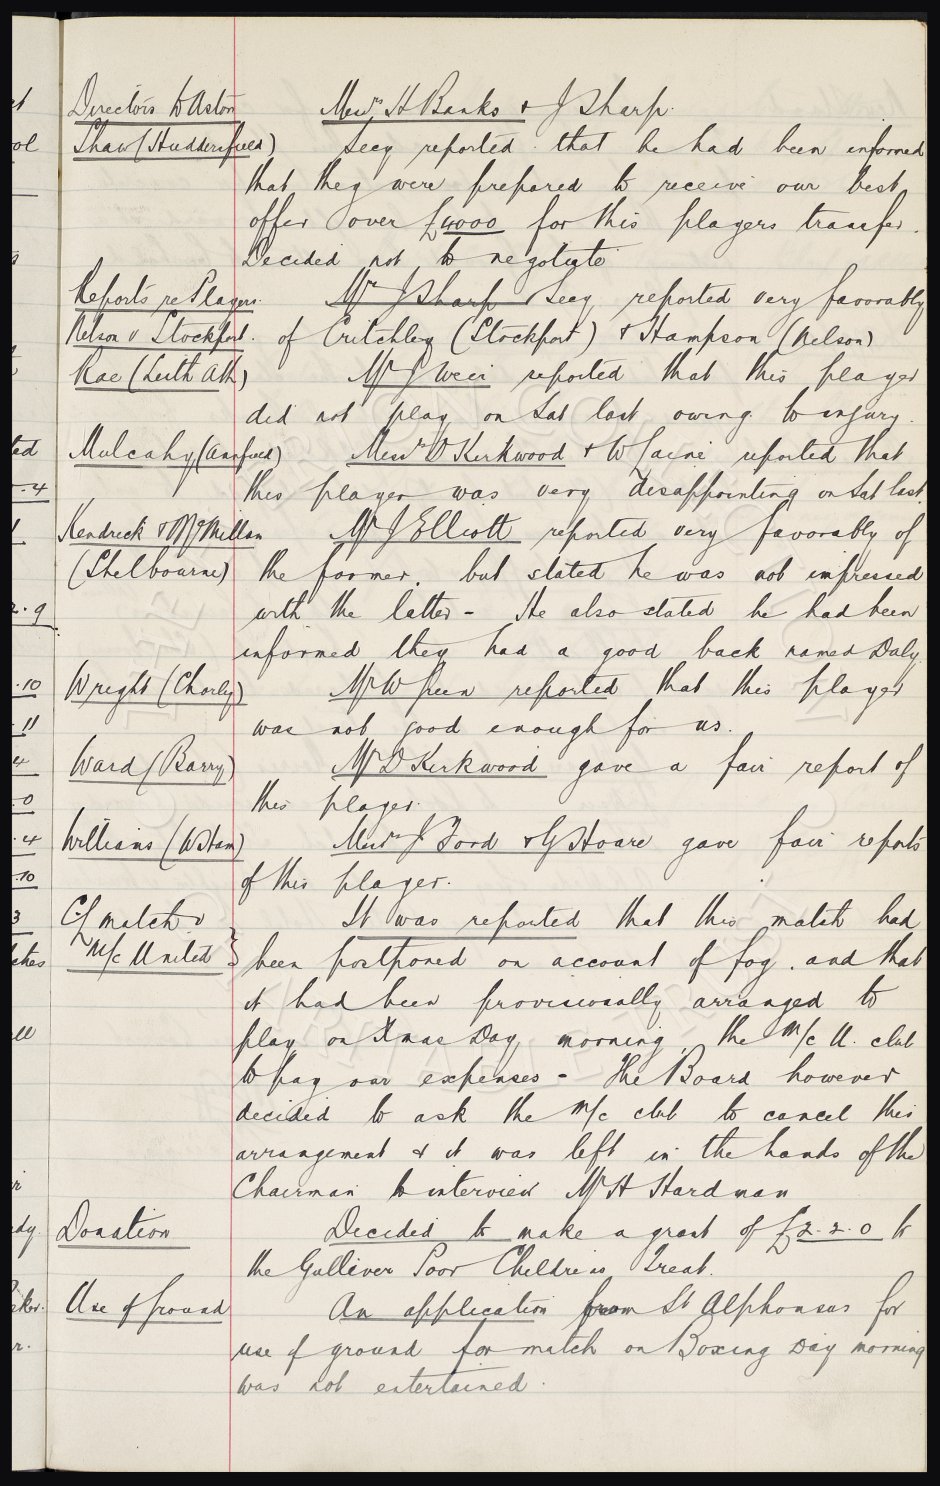 Directors to Aston Messrs H Banks & J Sharp.
Shaw (Huddersfield) Secy reported that he had been informed
that they were prepared to receive our best
offer over £4000 for this players transfer.
Decided not to negotiate
Reports re Players. Mr J Sharp & Secy reported very favorably
Nelson v Stockport. of Critchley (Stockport) & Hampson (Nelson)
Rae (Leith Ath) Mr J Weir reported that this player
did not play on Sat last owing to injury.
Mulcahy (Annfield) Messrs D Kirkwood & W reported that
this player was very disappointing on Sat last
Kendrick & McMillan Mr J Elliott reported very favorably of
(Shelbourne) the former. but stated he was not impressed
with the latter - He also stated he had been
informed they had a good back named Daly.
Wright (Chorley) Mr W Green reported that this player
was not good enough for us.
Ward (Barry) Mr D Kirkwood gave a fair report of
this player.
Williams (W Ham) Messrs J Ford & G Hoare gave fair reports
of this player.
CL match v It was reported that this match had
M/c United } been postponed on account of fog. and that
it had been provisionally arranged to
play on Xmas Day morning, the M/c U. club
to pay our expenses - The Board however
decided to ask the M/c club to cancel this
arrangement & it was left in the hands of the
Chairman to interview Mr H Hardman
Donation Decided to make a grant of £2.2.0 to
the Gulliver Poor Childrens Treat.
Use of ground An application from St Alphonsus for
use of ground for match on Boxing Day morning
was not entertained.